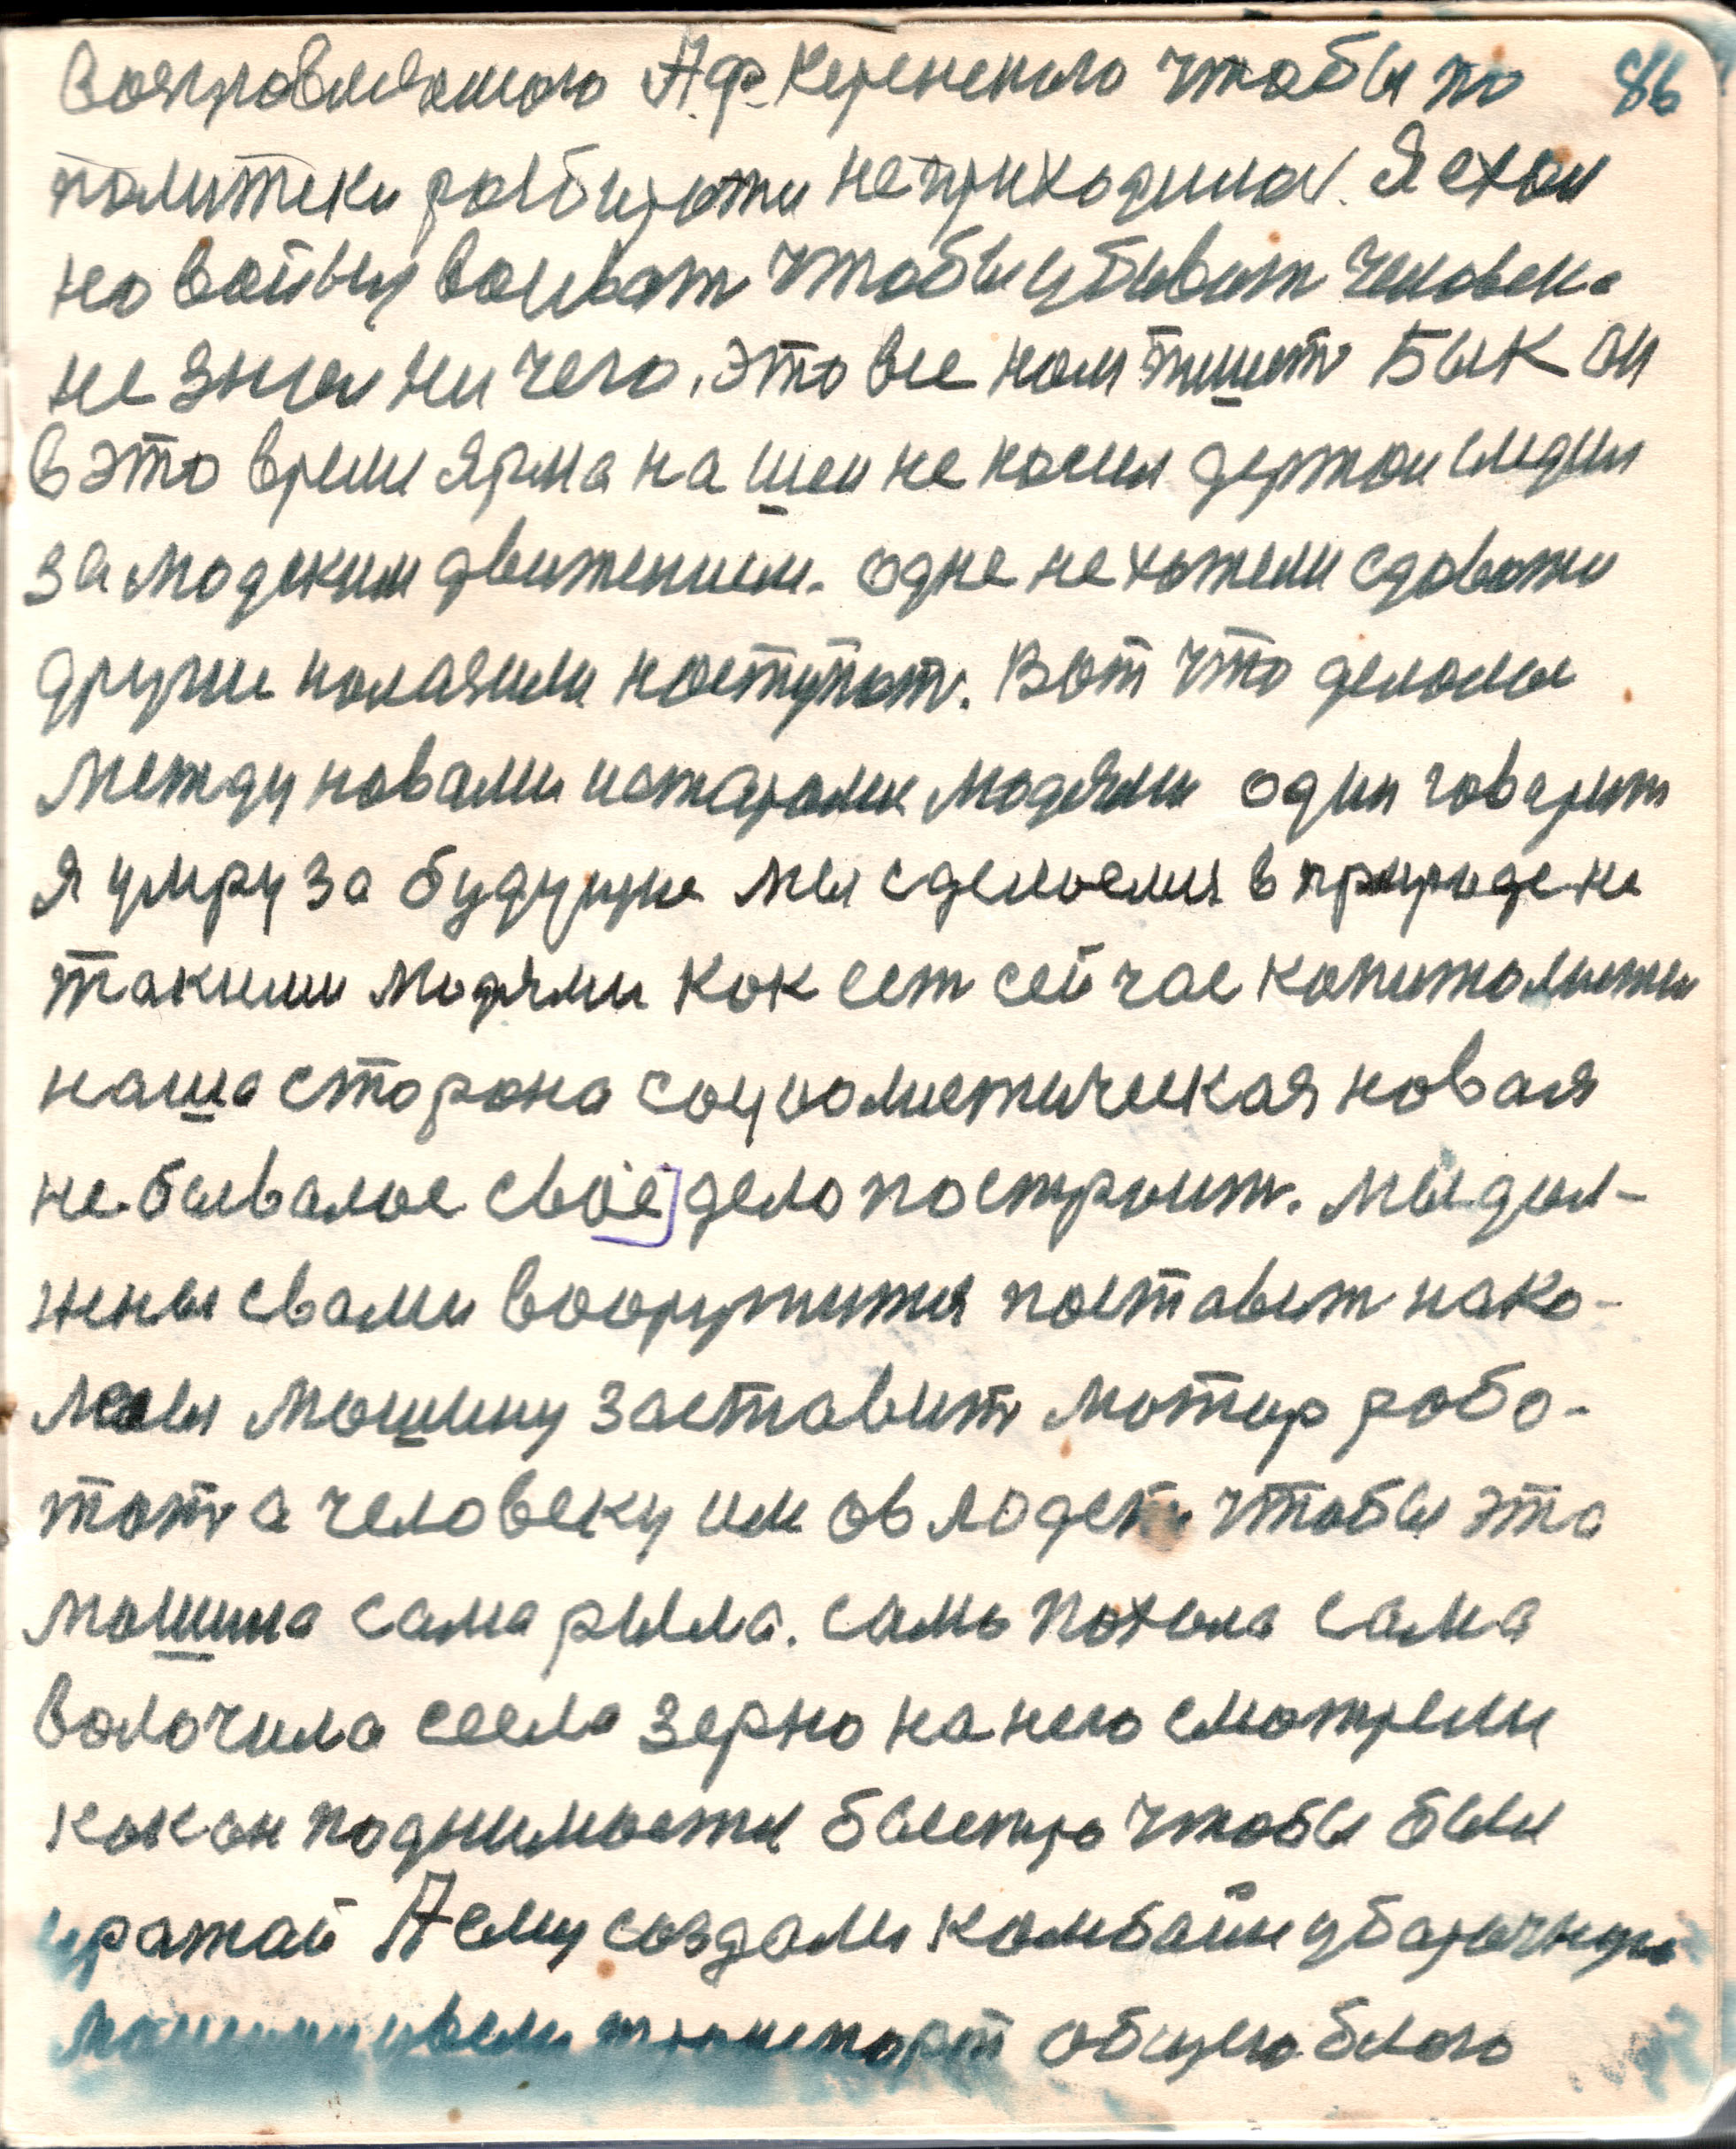 воэтровляющого А.Ф. Керенского чтобы по 86
политеки розбирати неприходилос. Я ехал
на войну воиват чтобы убивит человека
не знал ни чего. это все нам пишит Бык он
в это время ярма на шеи не носил держал следил
за людским движением. одне не хотели сдоватi
другие полазили наступат. Вот что делалос
между новами истарами людями один говарит
я умру за будущие мы сделаемся в природе не
такими людями как ест сейчас копиталисты
наша сторона социолистическая новая
не бывалое своё дело построит. мы дол-
жены свами вооружится поставит нако-
лесы машину заставит мотор рабо-
тат а человеку им овладет чтобы эта
машина сама рыла. сама похала сама
волочила сеела зерно на него смотрели
как он поднимается быстро чтобы был
уражай А ему создали комбайн уборочную
машину увели транспорт общего блого